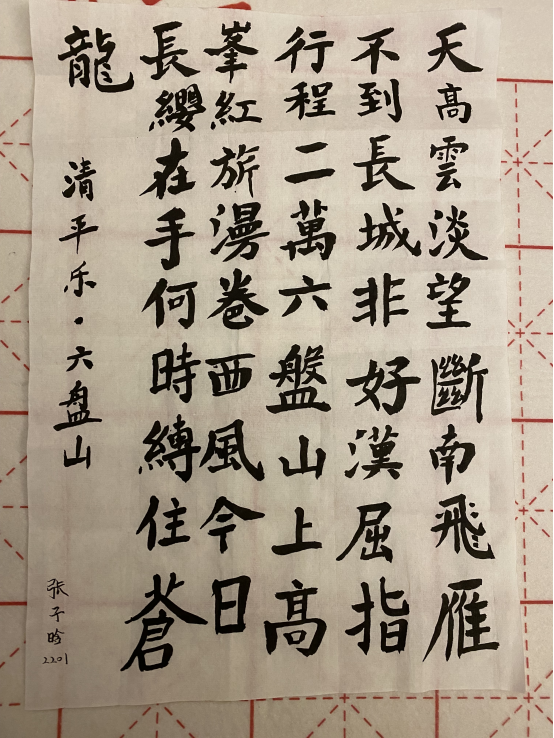 天高雲淡望斷南飛雁
不到長城非好漢屈指
行程二萬六盤山上高
峯紅旂漫卷西風今日
長纓在手何時縛住蒼
龍
清平乐·六盘山
张子晗
22.01